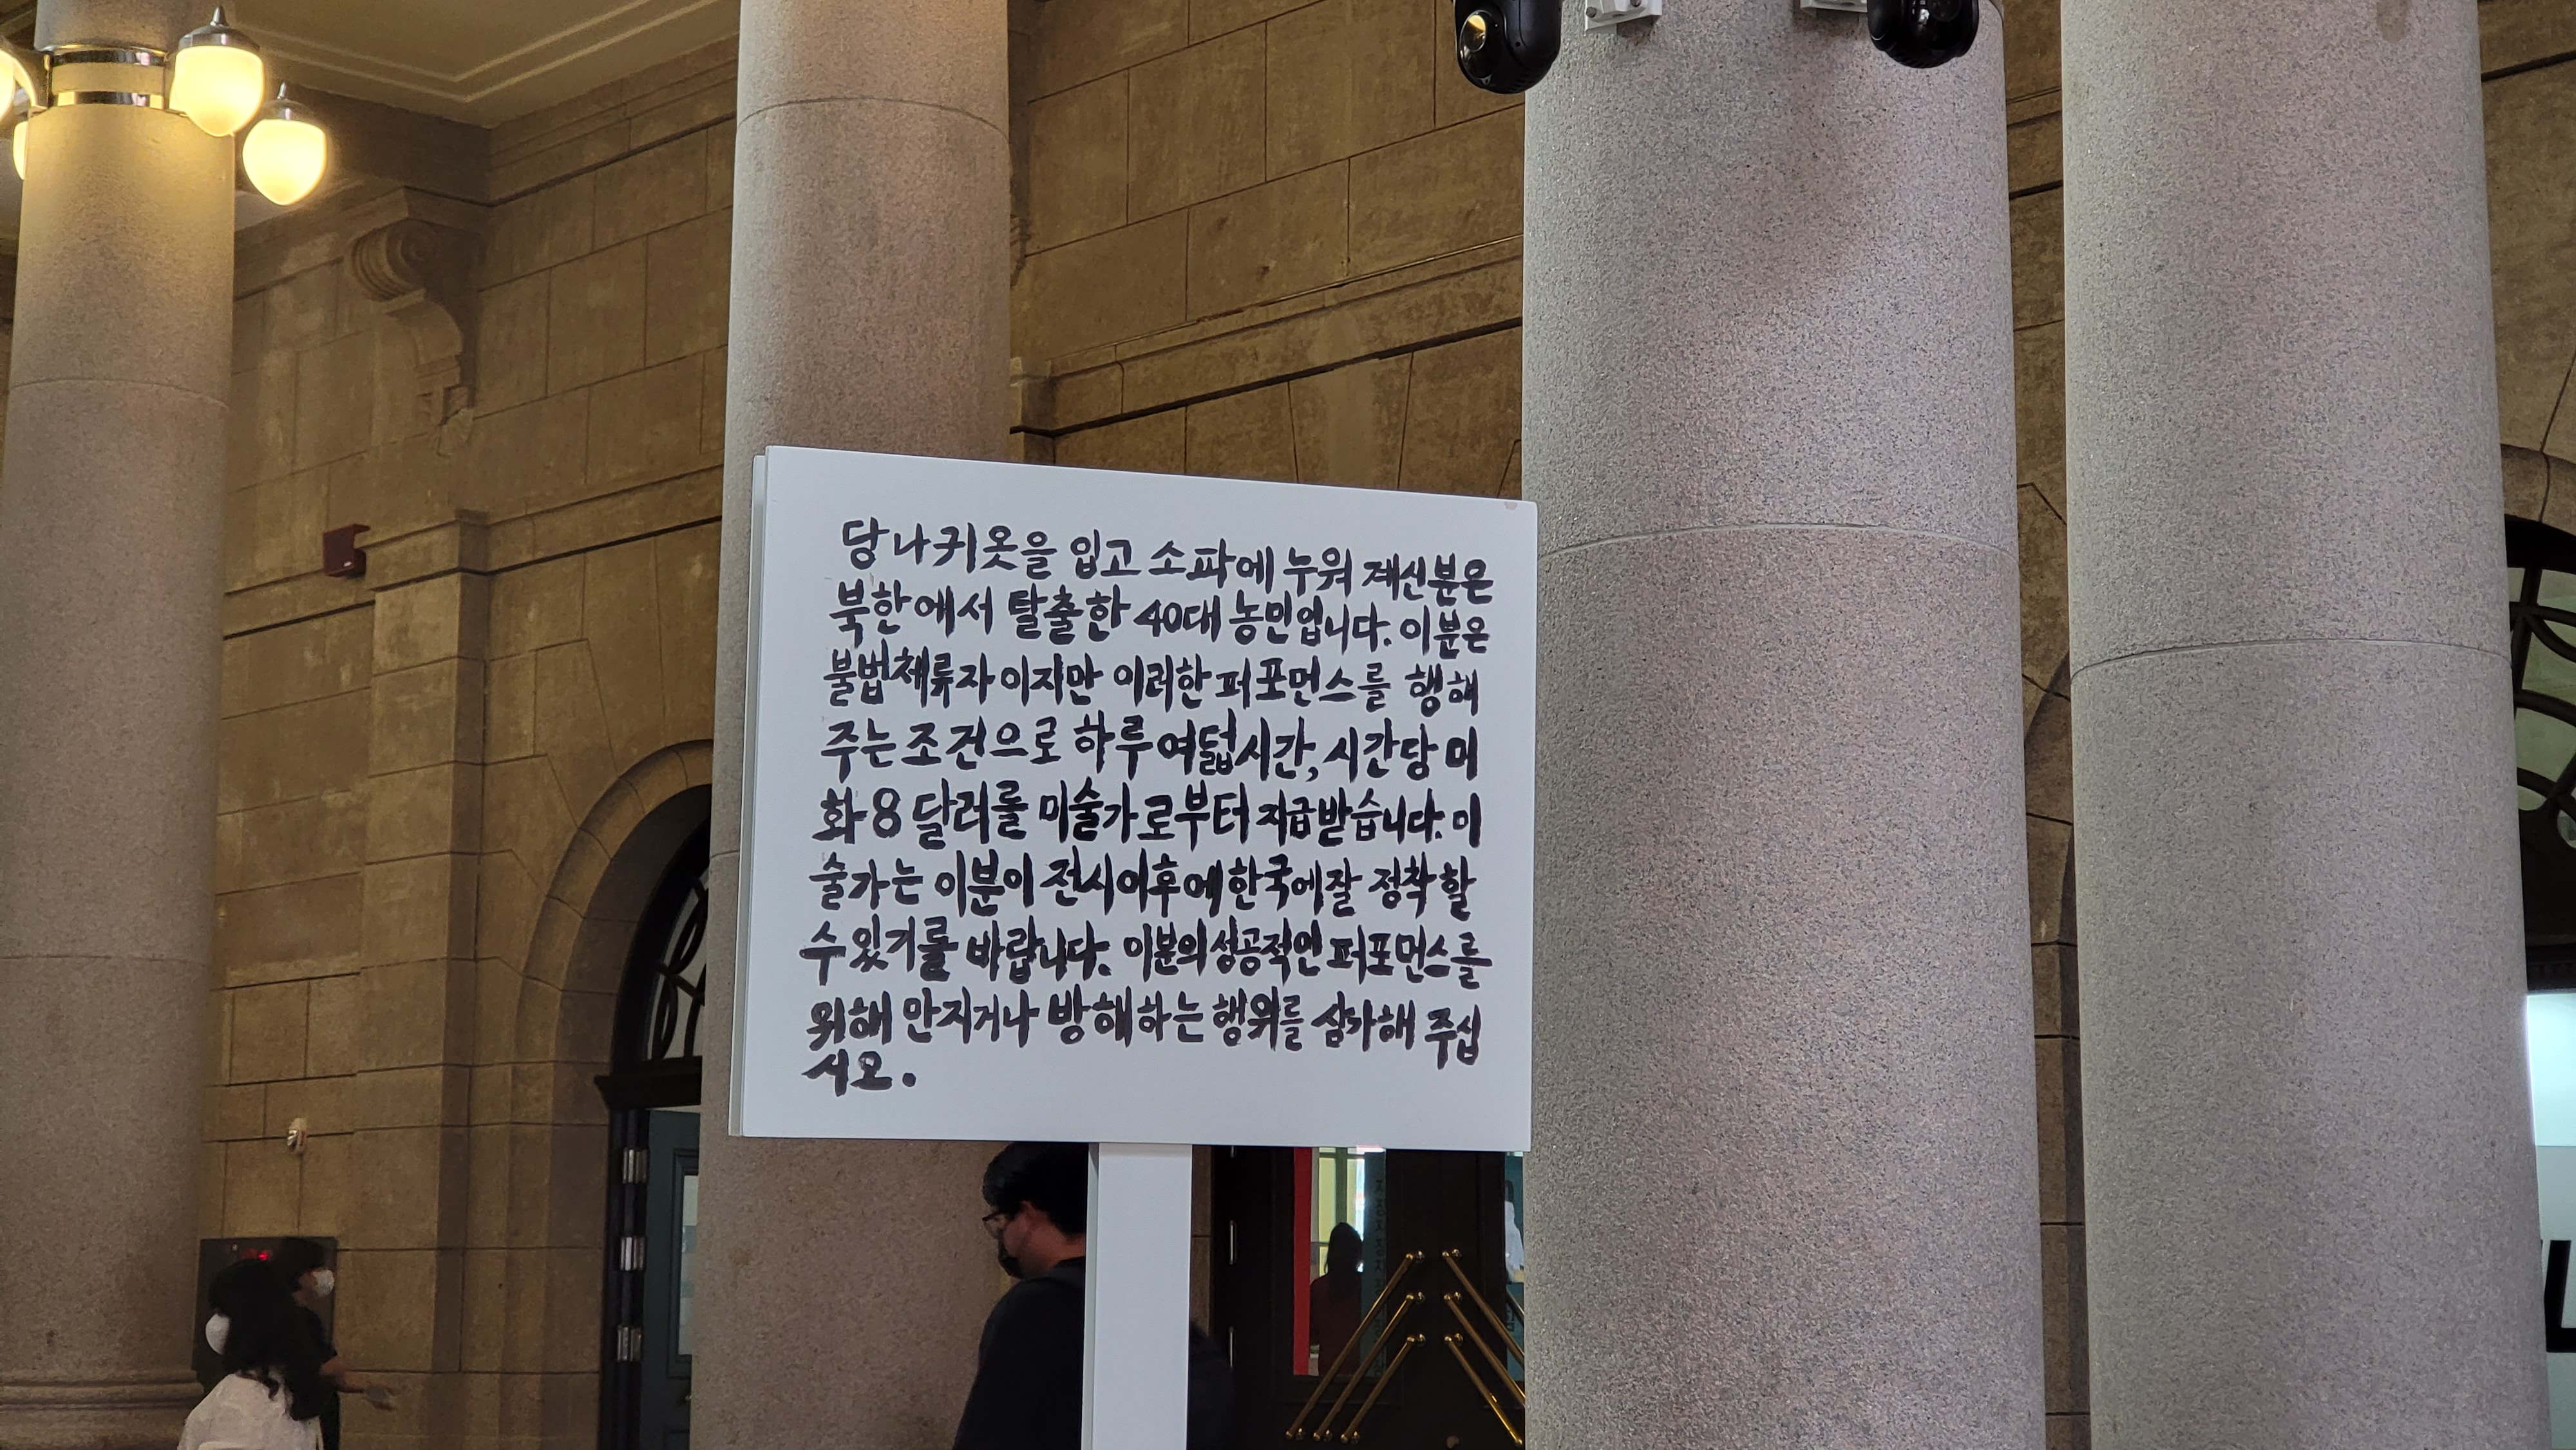 당나귀옷을 입고 소파에 누워 계신분은
북한에서 탈출한 40대 농민입니다. 이분은
불법체류자이지만 이러한 퍼포먼스를 행해
주는 조건으로 하루 여덟시간, 시간당 미
화 8 달러를 미술가로부터 지급받습니다. 미
술가는 이분이 전시이후에 한국에 잘 정착할
수 있기를 바랍니다. 이분의 성공적인 퍼포먼스를
위해 만지거나 방해하는 행위를 삼가해 주십
시오.